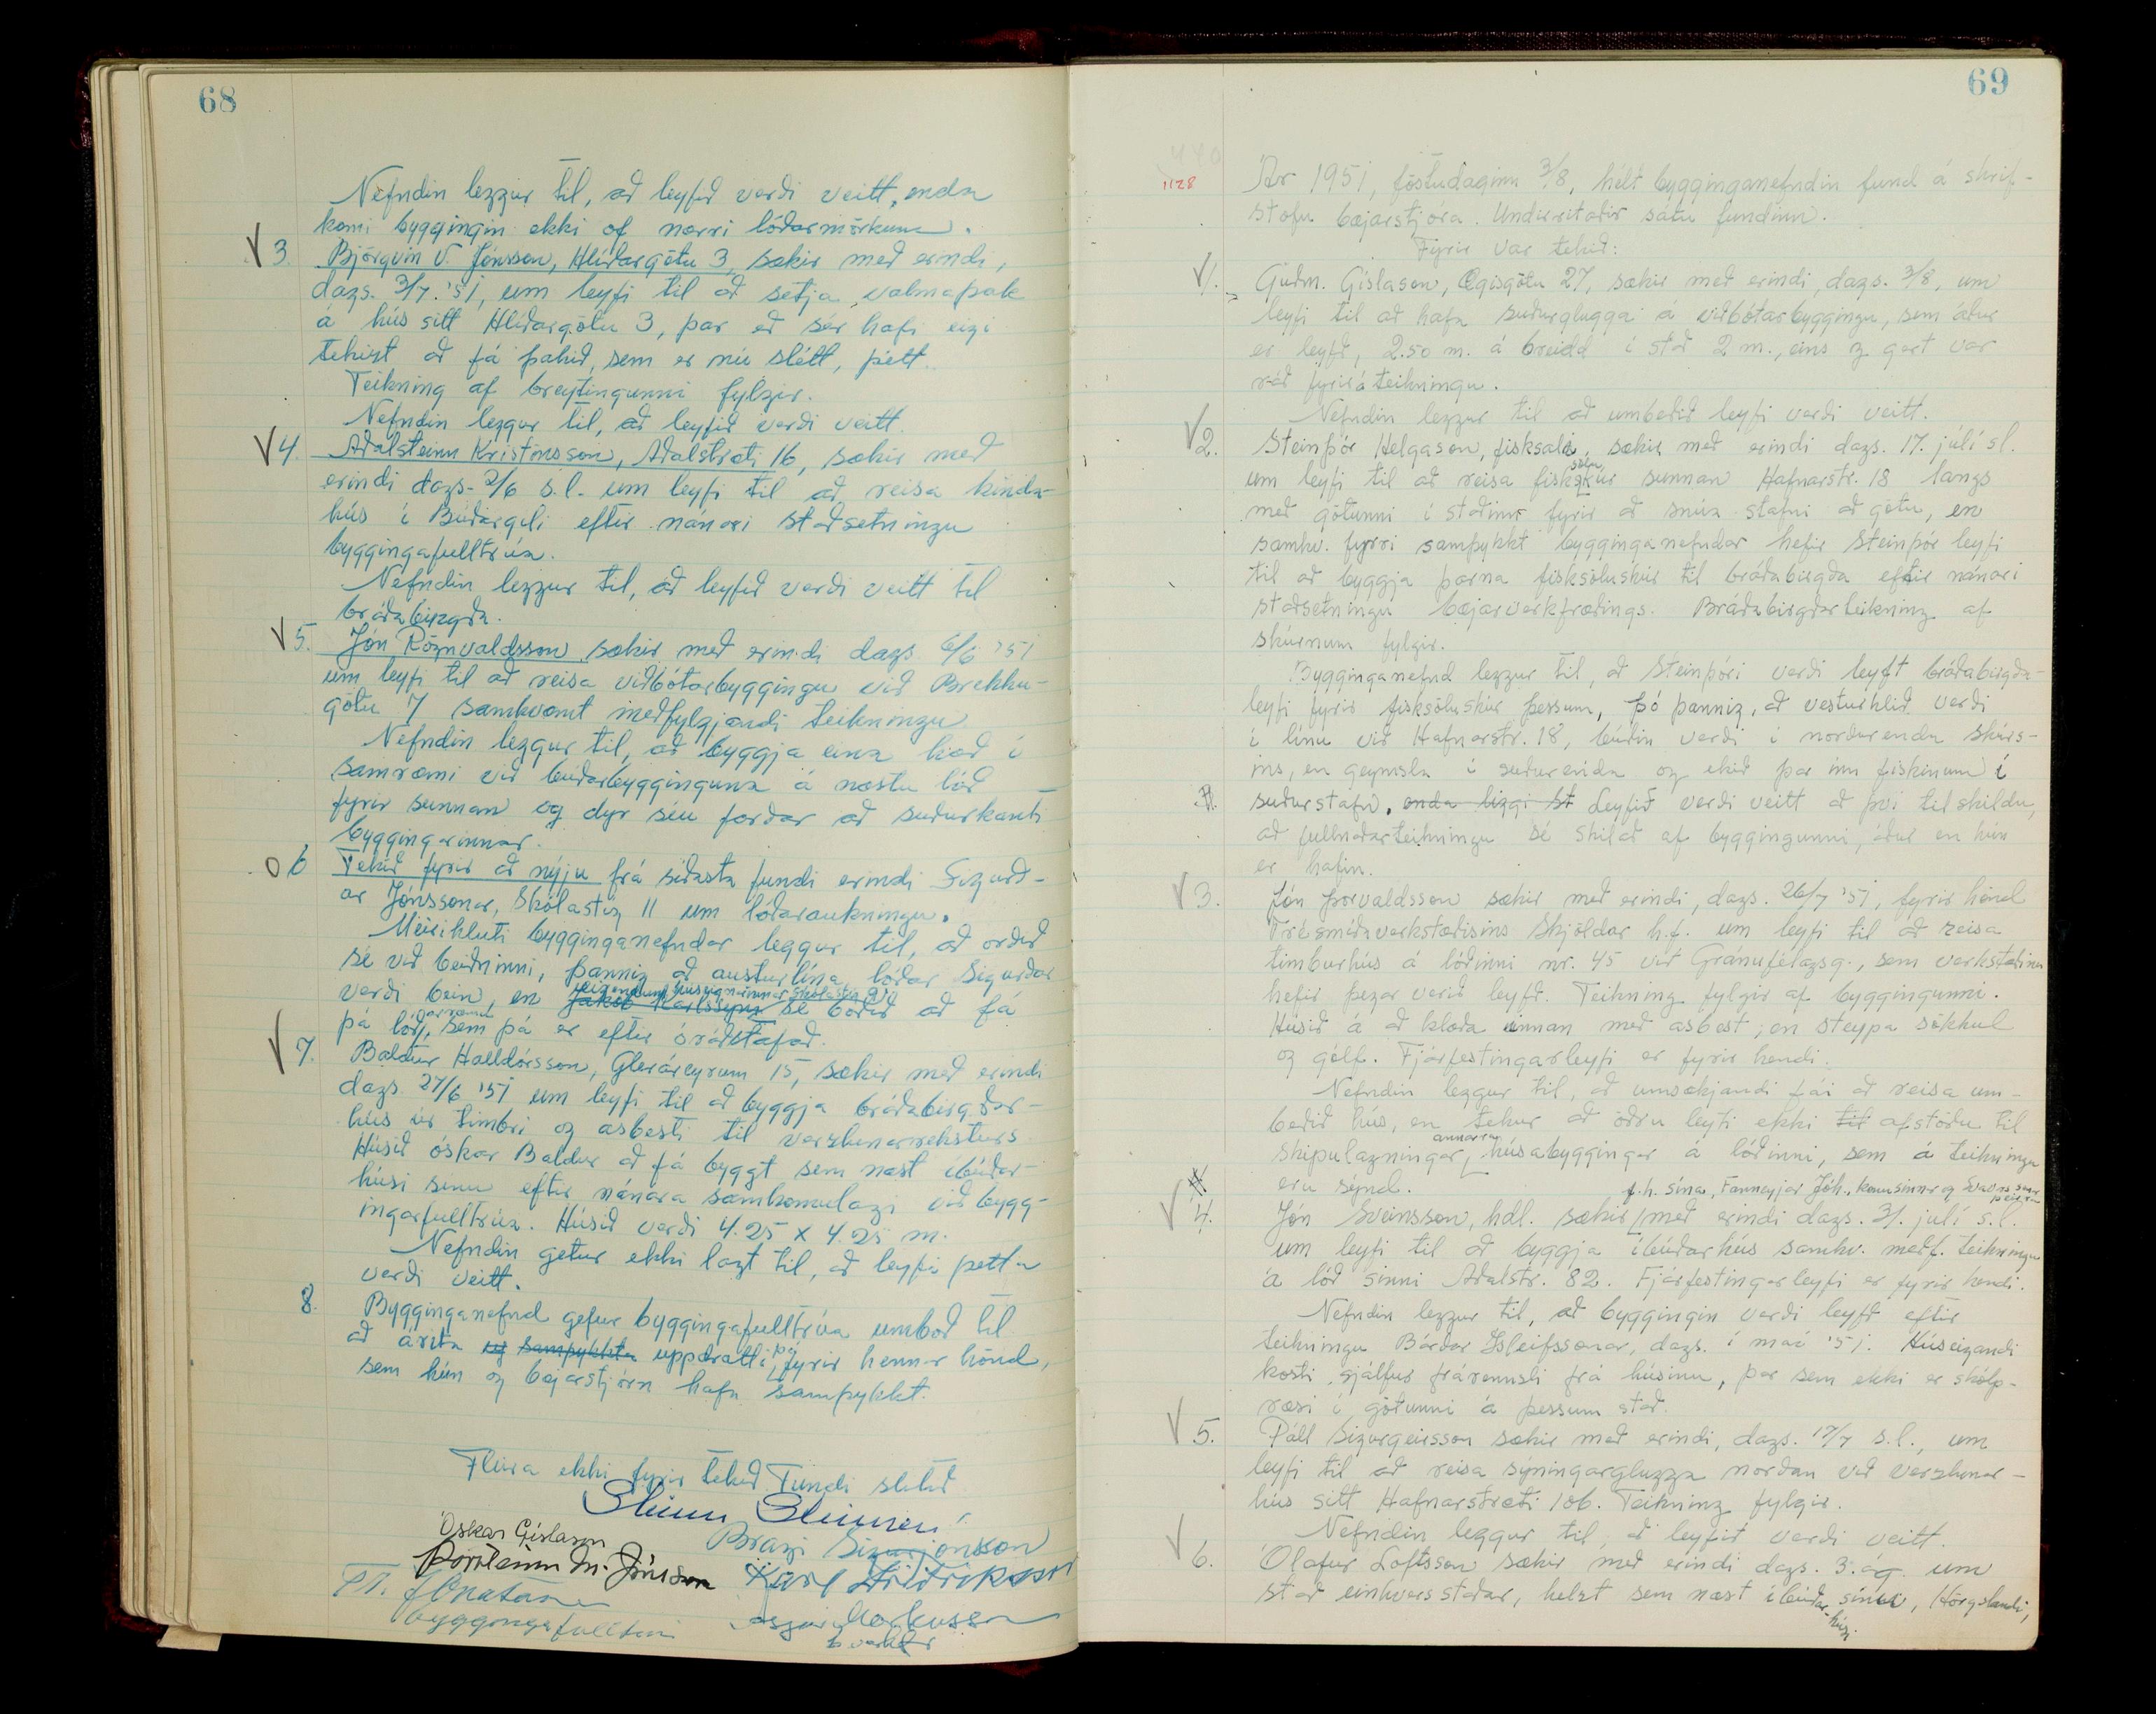 68
Nefndin leggur til, að leyfið verði veitt, enda
komi byggingin ekki of nærri lóðarmörkum.
V 3. Björgvin V. Jónsson, Hlíðargötu 3, sækir með erindi,
dags. 3/7. '51, um leyfi til að setja valmaþak
á hús sitt Hlíðargötu 3, þar eð sér hafi eigi
tekizt að fá þakið, sem er nú slétt, þétt.
Teikning af breytingunni fylgir.
Nefndin leggur til, að leyfið verði veitt.
V 4. Aðalsteinn Kristinsson, Aðalstræti 16, sækir með
erindi dags. 2/6 s.l. um leyfi til að reisa kinda-
hús í Búðargili eftir nánari staðsetningu
byggingafulltrúa.
Nefndin leggur til, að leyfið verði veitt til
bráðabirgða.
V 5. Jón Rögnvaldsson sækir með erindi dags 6/6 '51
um leyfi til að reisa viðbótarbyggingu við Brekku-
götu 7 samkvæmt meðfylgjandi teikningu
Nefndin leggur til, að byggja eina hæð í
samræmi við búðarbygginguna á næstu lóð
fyrir sunnan og dyr séu færðar að suðurkanti
byggingarinnar.
o 6 Tekið fyrir að nýju frá síðasta fundi erindi Sigurð-
ar Jónssonar, Skólastíg 11 um lóðaraukningu.
Meirihluti bygginganefndar leggur til, að orðið
sé við beiðninni, þannig að austurlína lóðar Sigurðar
eigendum húseignarinnar Skólastíg 9
verði bein, en Jakob Karlssyni sé boðið að fá
þá lóð, sem þá er eftir óráðstafað.
V 7. Baldur Halldórsson, Gleráreyrum 15, sækir með erindi
dags. 27/6 '51 um leyfi til að byggja bráðabirgðar-
hús úr timbri og asbesti til verzlunarreksturs.
Húsið óskar Baldur að fá byggt sem næst íbúðar-
húsi sínu eftir nánara samkomulagi við bygg-
ingarfulltrúa. Húsið verði 4.25 x 4.25 m.
Nefndin getur ekki lagt til, að leyfi þetta
verði veitt.
8. Bygginganefnd gefur byggingafulltrúa umboð til
að árita og samþykkta uppdrætti, þá fyrir hennar hönd,
sem hún og bæjarstjórn hafa samþykkt.
Fleira ekki fyrir tekið Fundi slitið
Steinn Steinsen
Óskar Gíslason
Bragi Sigurjónsson
Þorsteinn M. Jónsson
Karl Friðriksson
Ásgeir Markússon
byggingafulltrúi
b. verkfr
69
1128
Ár 1951, föstudaginn 3/8, hélt bygginganefndin fund á skrif-
stofu bæjarstjóra. Undirritaðir sátu fundinn.
Fyrir var tekið:
V 1. Guðm. Gíslason, Ægisgötu 27, sækir með erindi, dags. 3/8, um
leyfi til að hafa suðurglugga á viðbótarbyggingu, sem áður
er leyfð, 2.50 m. á breidd í stað 2 m., eins og gert var
ráð fyrir á teikningu.
Nefndin leggur til að umbeðið leyfi verði veitt.
V 2. Steinþór Helgason, fisksali, sækir með erindi dags. 17. júlí sl.
um leyfi til að reisa fisksöluskúr sunnan Hafnarstr. 18 langs
með götunni í staðinn fyrir að snúa stafni að götu, en
samkv. fyrri samþykkt bygginganefndar hefir Steinþór leyfi
til að byggja þarna fisksöluskúr til bráðabirgða eftir nánari
staðsetningu bæjarverkfræðings. Bráðabirgðarteikning af
skúrnum fylgir.
Bygginganefnd leggur til, að Steinþóri verði leyft bráðabirgða-
leyfi fyrir fisksöluskúr þessum, þó þannig, að vesturhlið verði
í línu við Hafnarstr. 18, búðin verði í norðurenda skúrs-
ins, en geymsla í suðurenda og ekið þar inn fiskinum í
suðurstafn, enda liggi st Leyfið verði veitt að því tilskildu,
að fullnaðarteikningu sé skilað af byggingunni, áður en hún
er hafin.
V 3. Jón Þorvaldsson sækir með erindi, dags. 26/7 '51, fyrir hönd
Trésmíðaverkstæðisins Skjöldur h.f. um leyfi til að reisa
timburhús á lóðinni nr. 45 við Gránufélagsg., sem verkstæðinu
hefir þegar verið leyfð. Teikning fylgir af byggingunni.
Húsið á að klæða innan með asbest, en steypa sökkul
og gólf. Fjárfestingarleyfi er fyrir hendi.
Nefndin leggur til, að umsækjandi fái að reisa um-
beðið hús, en tekur að öðru leyti ekki til afstöðu til
skipulagningar annarra húsabygginga á lóðinni, sem á teikningu
eru sýnd.
f.h. sína, Fanneyjar Jóh., konu sinnar
V 4. Jón Sveinsson, hdl. sækir með erindi dags. 31. júlí s.l.
um leyfi til að byggja íbúðarhús samkv. meðf. teikningu
á lóð sinni Aðalstr. 82. Fjárfestingarleyfi er fyrir hendi.
Nefndin leggur til, að byggingin verði leyfð eftir
teikningu Bárðar Ísleifssonar, dags. í maí '51. Húseigandi
kosti sjálfur frárennsli frá húsinu, þar sem ekki er skólp-
ræsi í götunni á þessum stað.
V 5. Páll Sigurgeirsson sækir með erindi, dags. 17/7 s.l., um
leyfi til að reisa sýningarglugga norðan við verzlunar-
hús sitt Hafnarstræti 106. Teikning fylgir.
Nefndin leggur til, að leyfið verði veitt.
V 6. Ólafur Loftsson sækir með erindi dags. 3. ág. um
stað einhversstaðar, helzt sem næst íbúðarhúsi sínu, Hörgslandi,